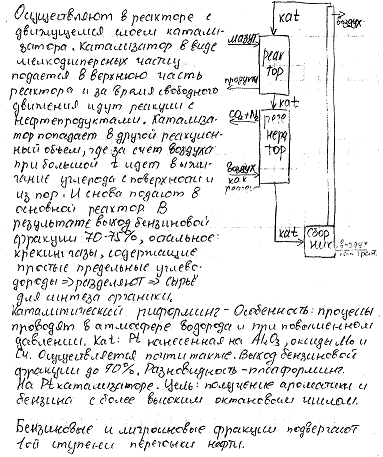 Осуществляют в реакторе с
движущемся слоем катали-
затора. Катализатор в виде
мелкодисперсных частиц
подается в верхнюю часть
реактора и за время свободного
движения идут реакции с
нефтепродуктами. Катализа-
тор попадает в другой реакцион-
ный объем, где за счет воздуха
при большой t идет выжи-
гание углерода с поверхности и
из пор. И снова подают в
основной реактор. В
результате выход бензиновой
фракции 70-75%, остальное:
крекинг газы, содержащие
простые предельные углево-
дороды ⇒ разделяют ⇒ сырьё
для синтеза органики.
Каталитический риформинг - Особенность: процессы
проводят в атмосфере водорода и при повышенном
давлении. Kat: Pt нанесенная на Al2O3, оксиды Mo и
Осуществляется почти также. Выход бензиновой
фракции до 90%. Разновидность - платформинг.
на Pt катализаторе. Цель: получение ароматики и
бензина с более высоким октановым числом.
Бензиновые и лигроиновые фракции подвергают
1ой ступени перегонки нефти.
kat
воздух
мазут
реак
тор
продукты
kat
CO2+N2
реге
нера
тор
воздух
kat
сбор
ник
воздух